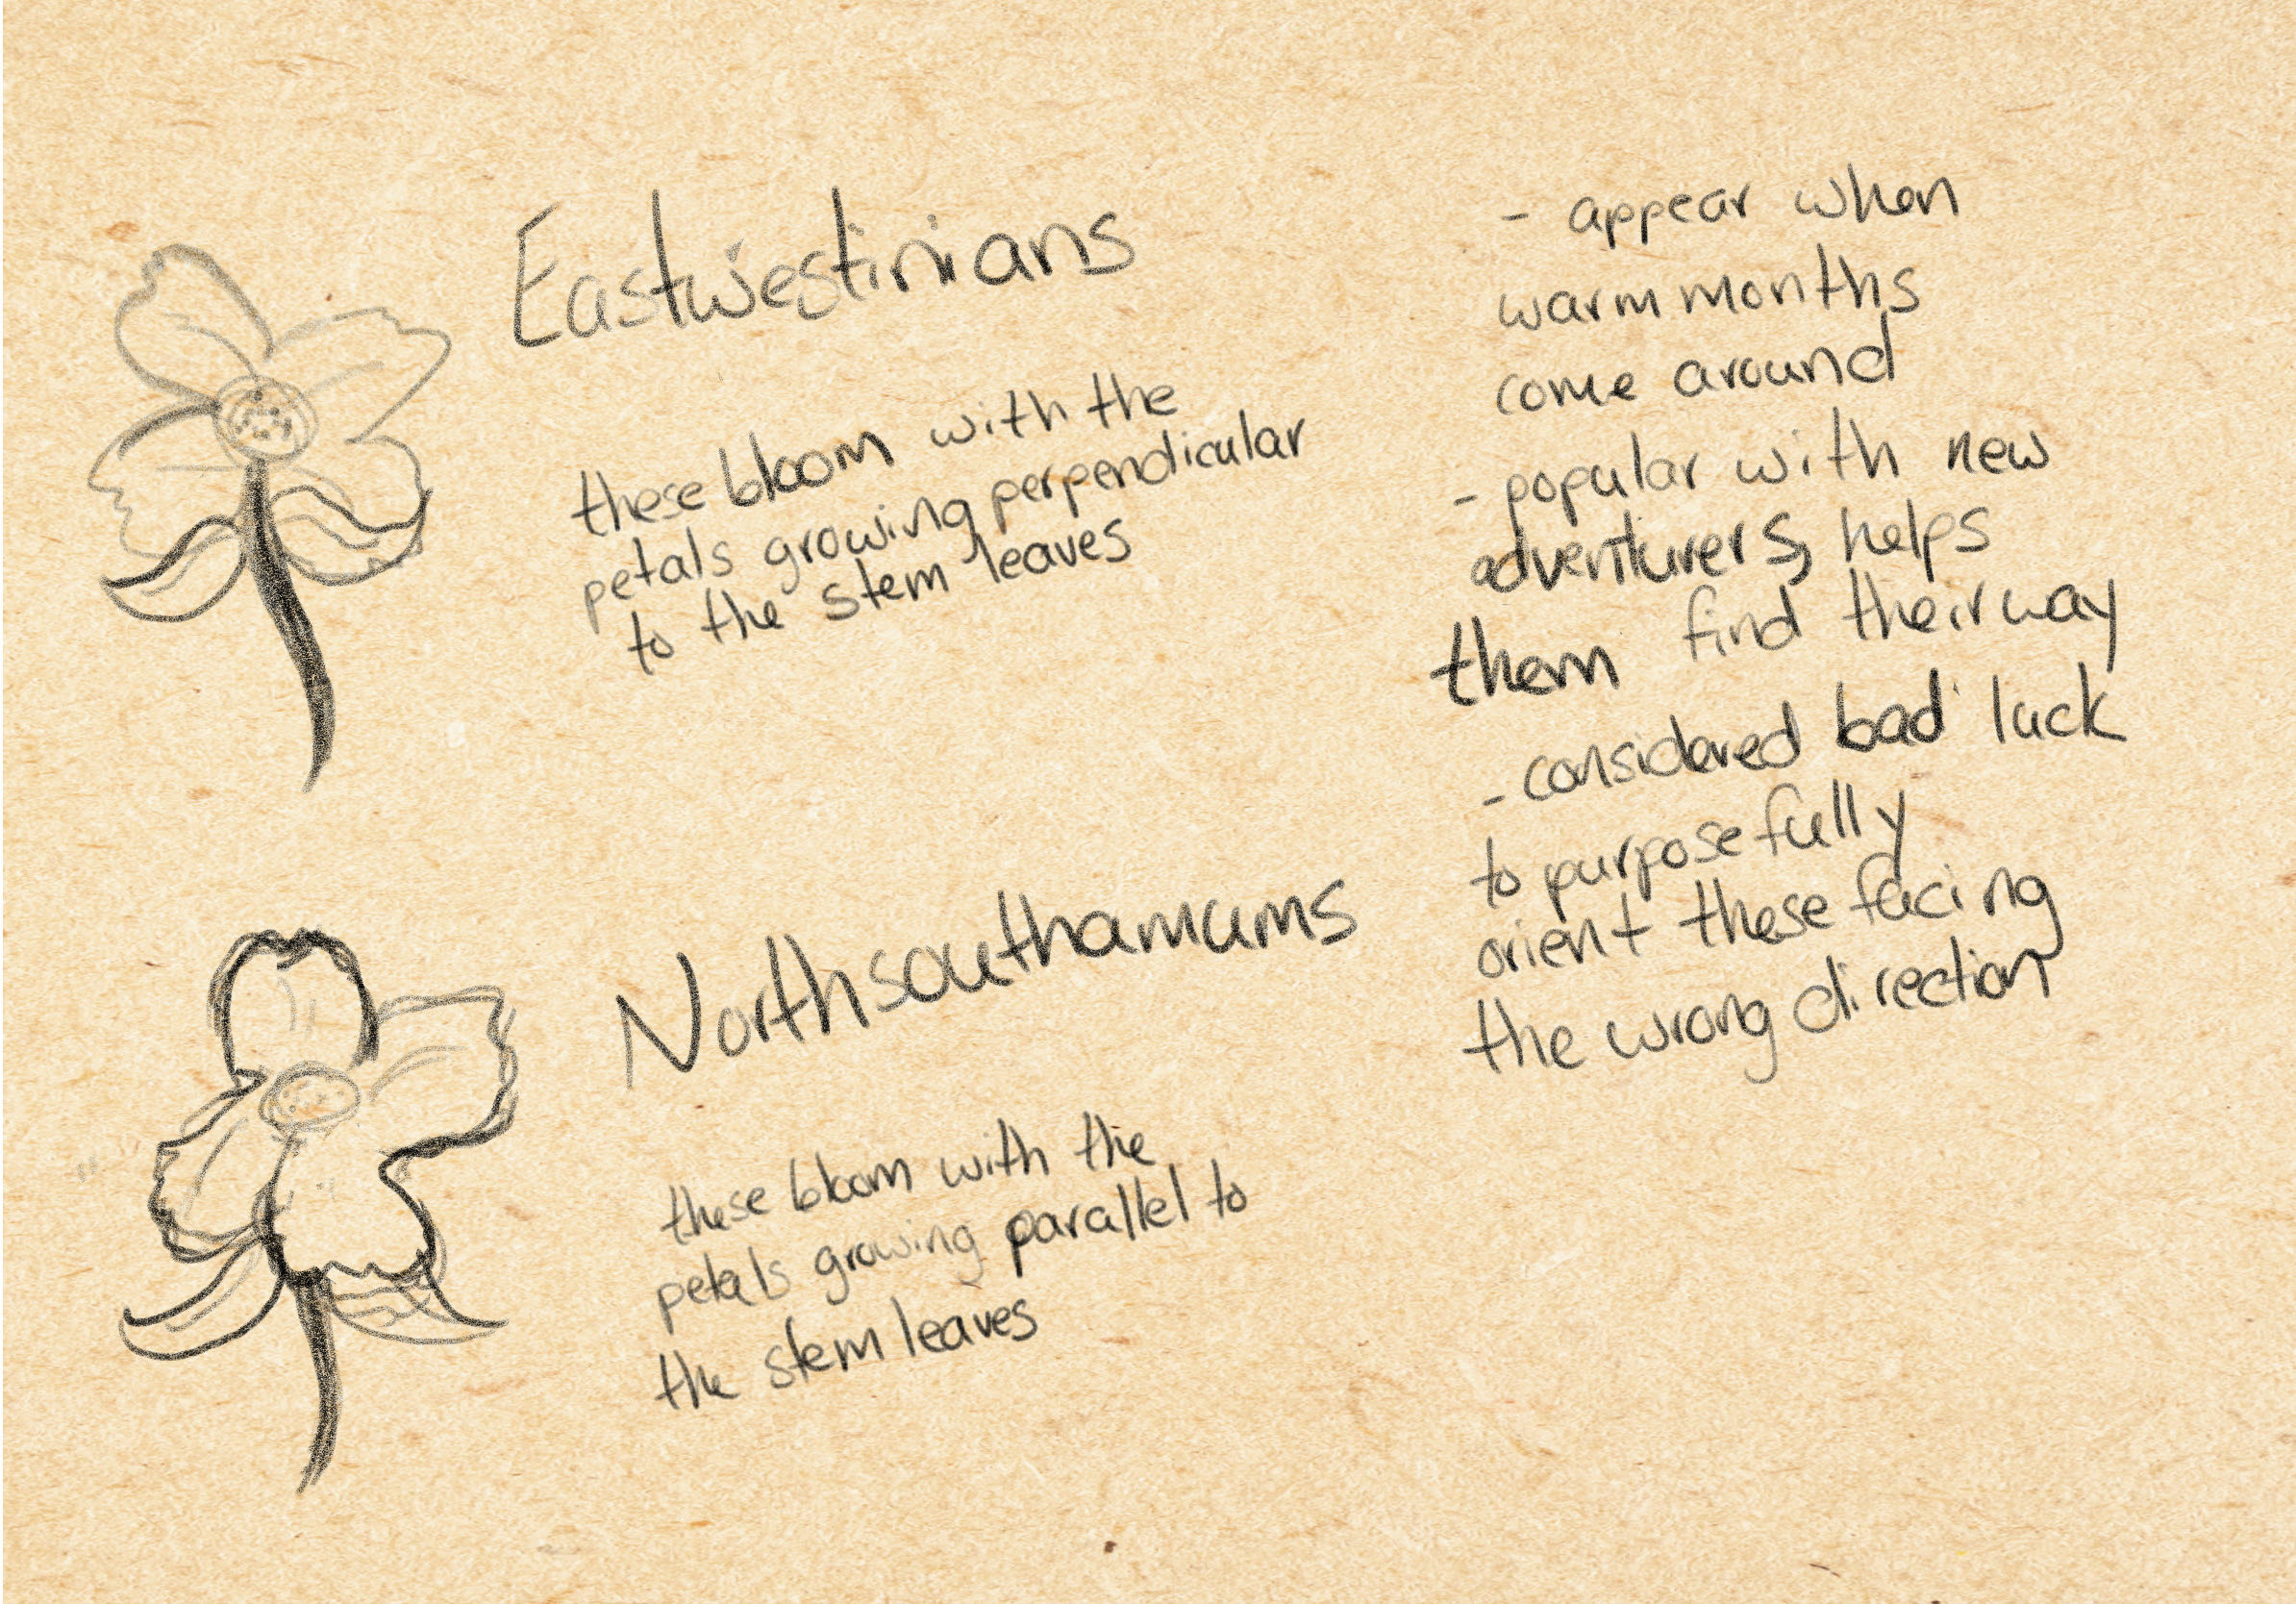 Eastwestinians
these bloom with the
petals growing perpendicular
to the stem leaves
Northsouthamums
these bloom with the
petals growing parallel to
the stem leaves
- appear when
warm months
come around
- popular with new
adventurers, helps
them find their way
- considered bad luck
to purposefully
orient these facing
the wrong direction